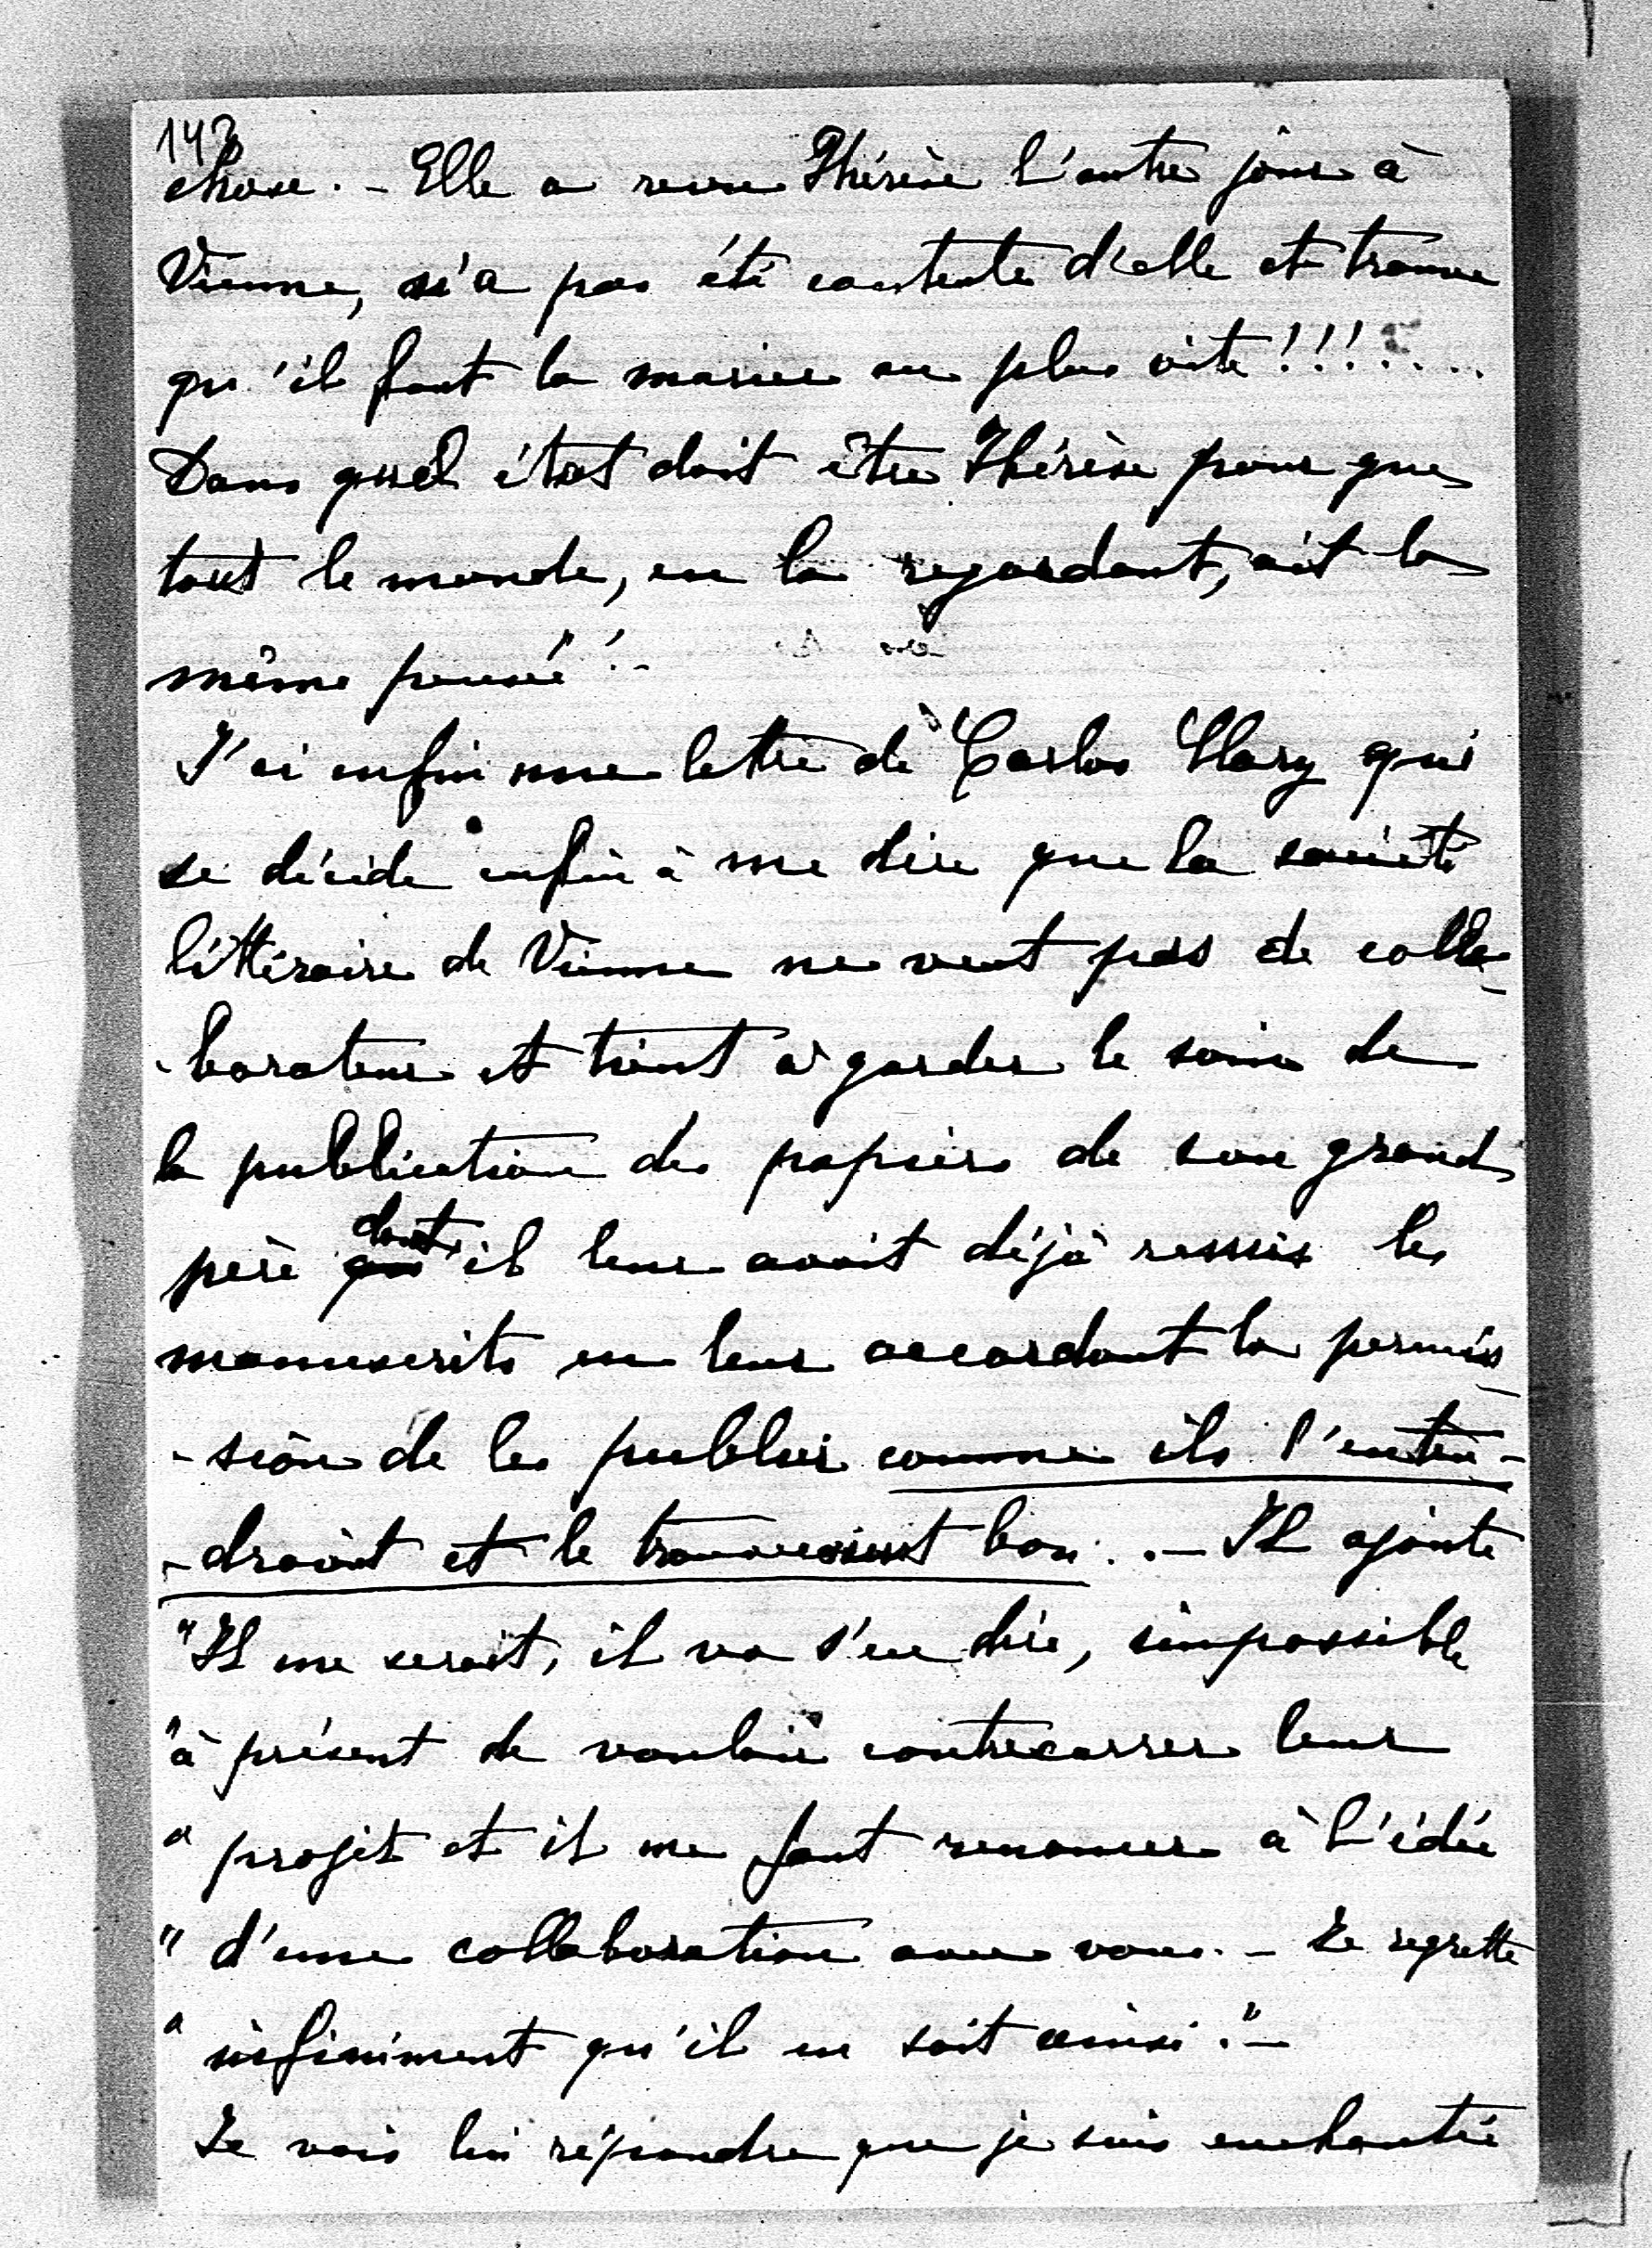 143
chose. - Elle a revu Thérèse l'autre jour à
Vienne, n'a pas été contente d'elle et trouve
qu'il faut la marier au plus vite!!!.....
Dans quel état doit être Thérèse pour que
tout le monde, en la regardant, ait la
même pensée!..
J'ai enfin une lettre de Carlos Clary qui
se décide enfin à me dire que la société
littéraire de Vienne ne veut pas de colla-
-borateur et tient à garder le soin de
la publication des papiers de son grand
père dont il leur avait déjà remis les
manuscrits en leur accordant la permis-
-sion de les publier comme ils l'enten-
-draient et le trouveraient bon. .- Il ajoute
"Il me serait, il va s'en dire, impossible
"à présent de vouloir contrecarrer leur
"projet et il me faut renoncer à l'idée
"d'une collaboration avec vous. - Je regrette
"infiniment qu'il en soit ainsi." -
Je vais lui répondre que je suis enchantée